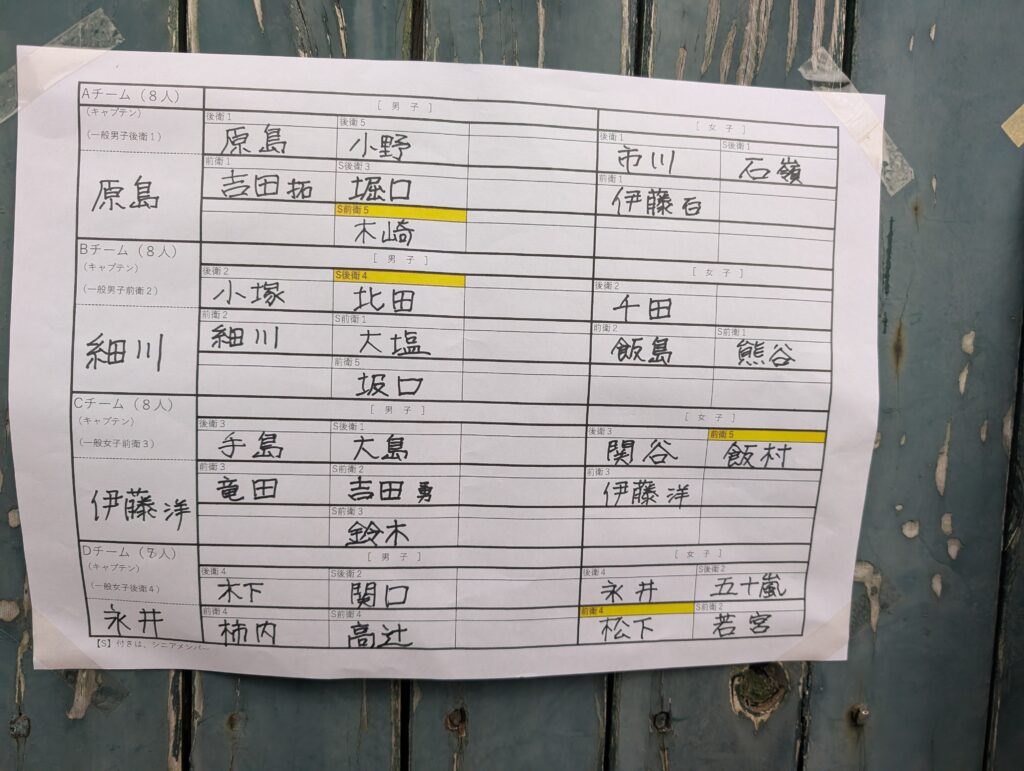 Aチーム（8人） [ 男 子 ] [ 女 子 ]
(キャプテン) 後衛1 後衛5 後衛1 S後衛1
(一般男子後衛1) 原島 小野 市川 石嶺
前衛1 S後衛3 前衛1
原島 吉田拓 堀口 伊藤百
S前衛5
木崎
Bチーム（8人） [ 男 子 ] [ 女 子 ]
(キャプテン) 後衛2 S後衛4 後衛2
(一般男子前衛2) 小塚 北田 千田
前衛2 S前衛1 前衛2 S前衛1
細川 細川 大塩 飯島 熊谷
前衛5
坂口
Cチーム（8人） [ 男 子 ] [ 女 子 ]
(キャプテン) 後衛3 S後衛1 後衛3 前衛5
(一般女子前衛3) 手島 大島 関谷 飯村
前衛3 S前衛2 前衛3
伊藤洋 竜田 吉田勇 伊藤洋
S前衛3
鈴木
Dチーム（8人） [ 男 子 ] [ 女 子 ]
(キャプテン) 後衛4 S後衛2 後衛4 S後衛2
(一般女子後衛4) 木下 関口 永井 五十嵐
前衛4 S前衛4 前衛4 S前衛2
永井 柿内 高辻 松下 若宮
【S】付きは、シニアメンバー